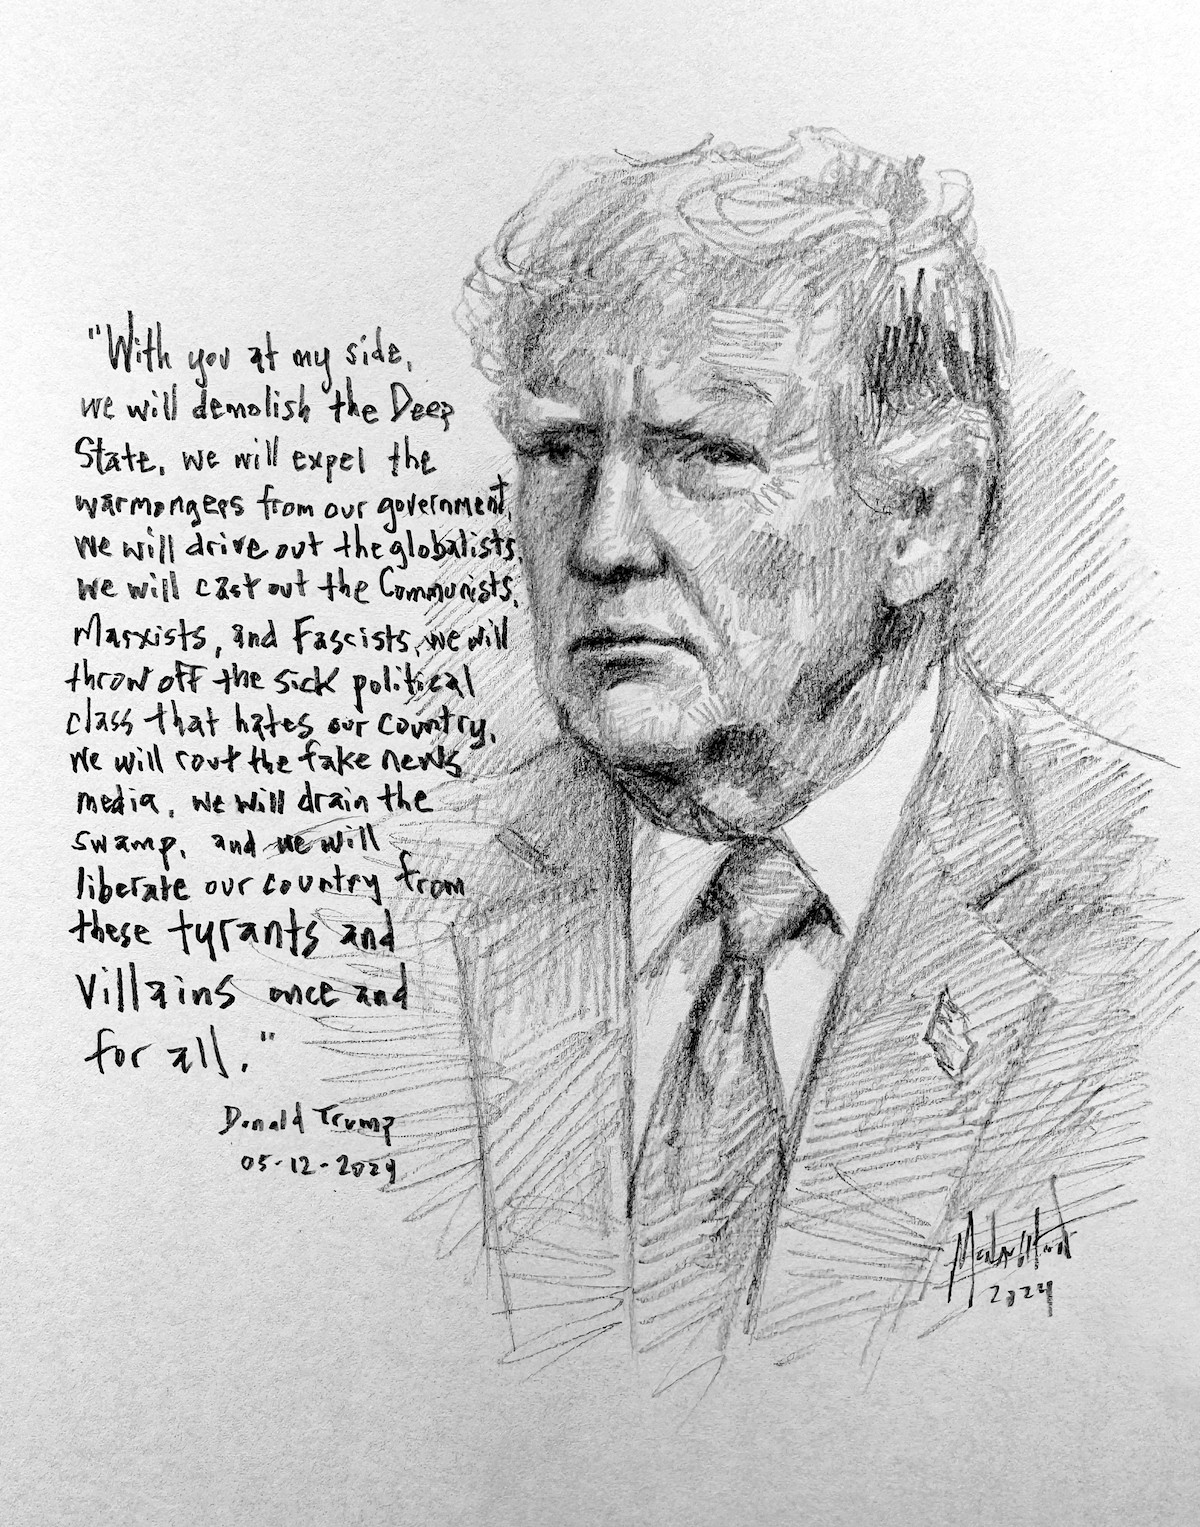 "With you at my side,
we will demolish the Deep
State, we will expel the
warmongers from our government,
we will drive out the globalists,
we will cast out the Communists,
Marxists, and Fascists, we will
throw off the sick political
class that hates our country,
we will rout the fake news
media, we will drain the
swamp, and we will
liberate our country from
these tyrants and
villains once and
for all."
Donald Trump
05-12-2024
2024